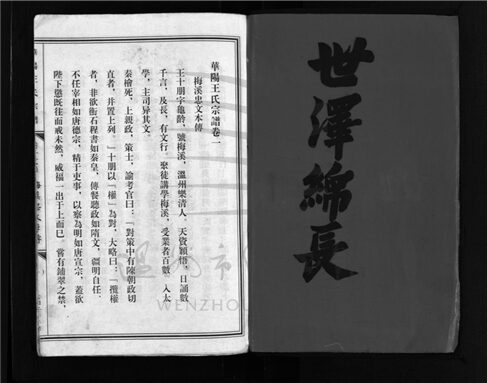 世澤綿長
華陽王氏宗譜卷一
梅溪忠文本傳
王十朋字龜齡，號梅溪，溫州樂清人，天資穎悟，日誦數
千言，及長，有文行，聚徒講學梅溪，受業者百數，入太
學，主司异其文。
秦檜死，上親政，策士，諭考官曰：「對策中有陳朝政切
直者，并置上列。」十朋以「權」為對，大略曰：「攬權
者，非欲衡石程書如秦皇，傳餐聽政如隋文，彊明自任，
不任宰相如唐德宗，精于吏事，以察為明如唐宣宗，蓋欲
陛下懲既往而戒未然，威福一出于上而已。嘗有鋪翠之禁，
華陽王氏宗譜
溫州市
WENZHOU